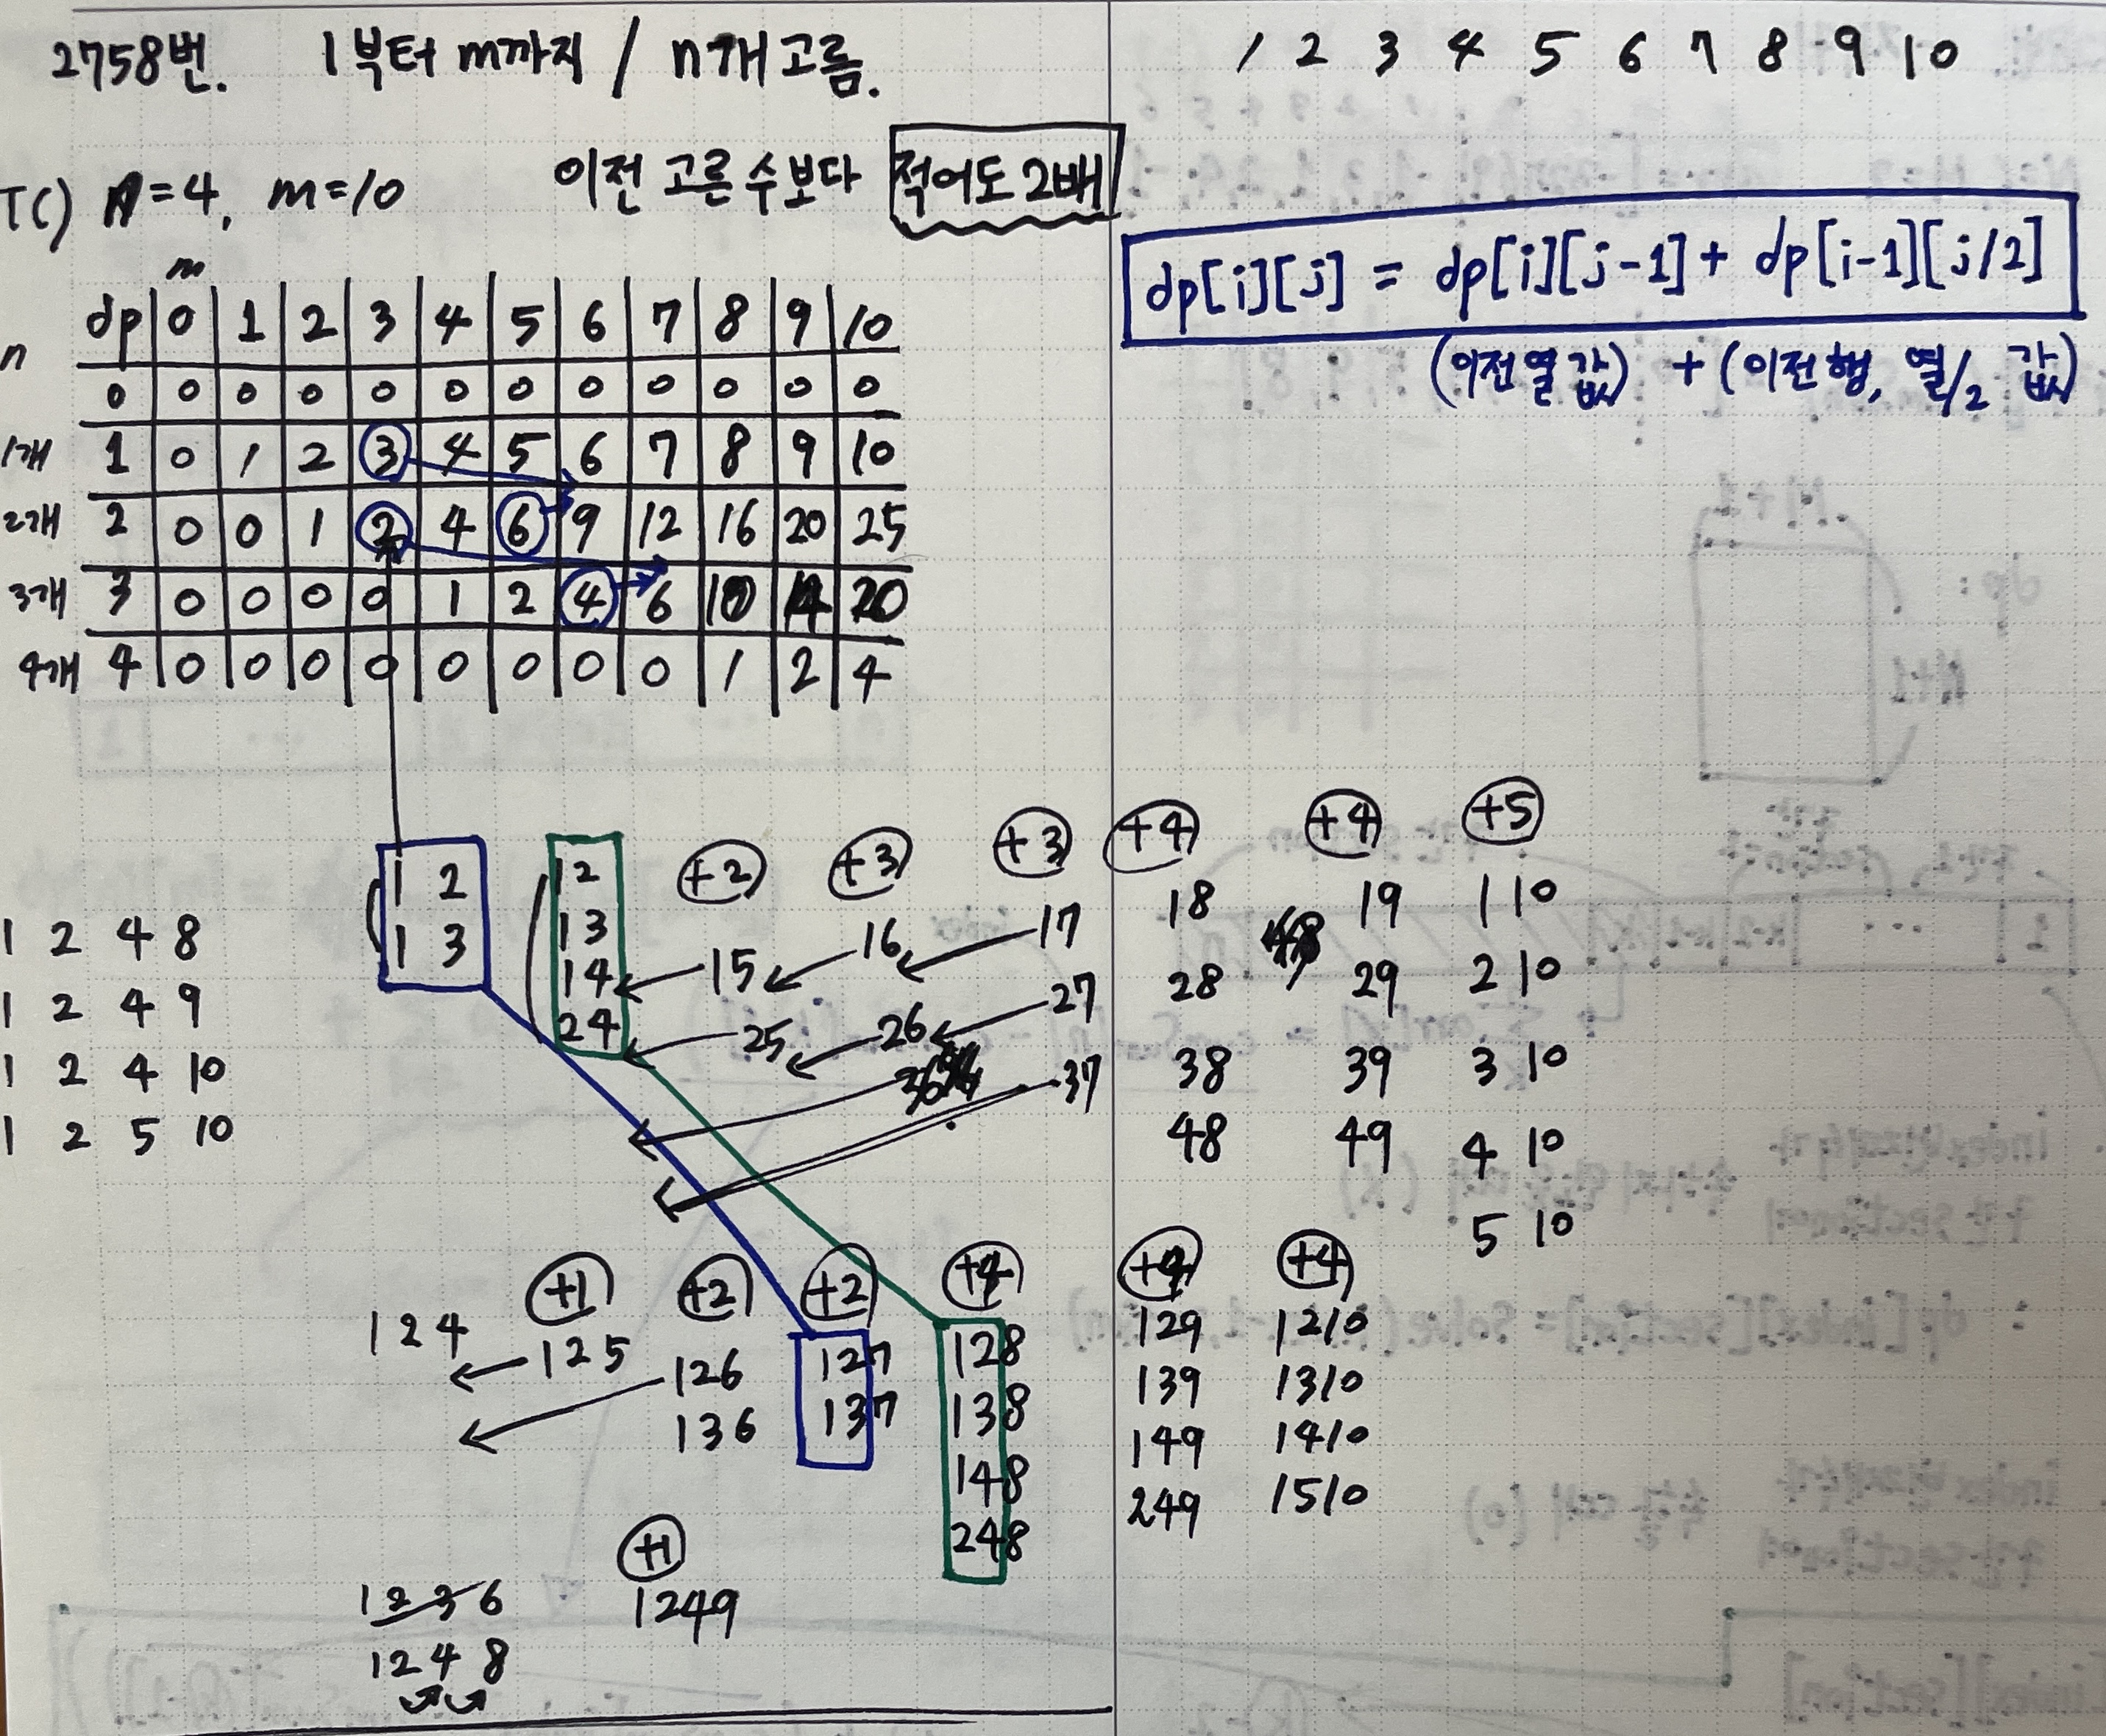 2758번. 1부터 m까지 / n개 고름.
1 2 3 4 5 6 7 8 9 10
TC) n=4, m=10 이전 고른 수보다 적어도 2배
dp[i][j] = dp[i][j-1] + dp[i-1][j/2]
(이전 열 값) + (이전 행, 열/2 값)
m
n dp 0 1 2 3 4 5 6 7 8 9 10
0 0 0 0 0 0 0 0 0 0 0 0
1개 1 0 1 2 3 4 5 6 7 8 9 10
2개 2 0 0 1 2 4 6 9 12 16 20 25
3개 3 0 0 0 0 1 2 4 6 10 14 20
4개 4 0 0 0 0 0 0 0 0 1 2 4
1 2 4 8
1 2 4 9
1 2 4 10
1 2 5 10
1 2
1 3
12
13
14
24
+2
15
25
+3
16
26
36
+3
17
27
37
+4
18
28
38
48
+4
19
29
39
49
+5
1 10
2 10
3 10
4 10
5 10
124
+1
125
+2
126
136
+2
127
137
+4
128
138
148
248
+4
129
139
149
249
+4
1210
1310
1410
1510
1236
1248
+1
1249